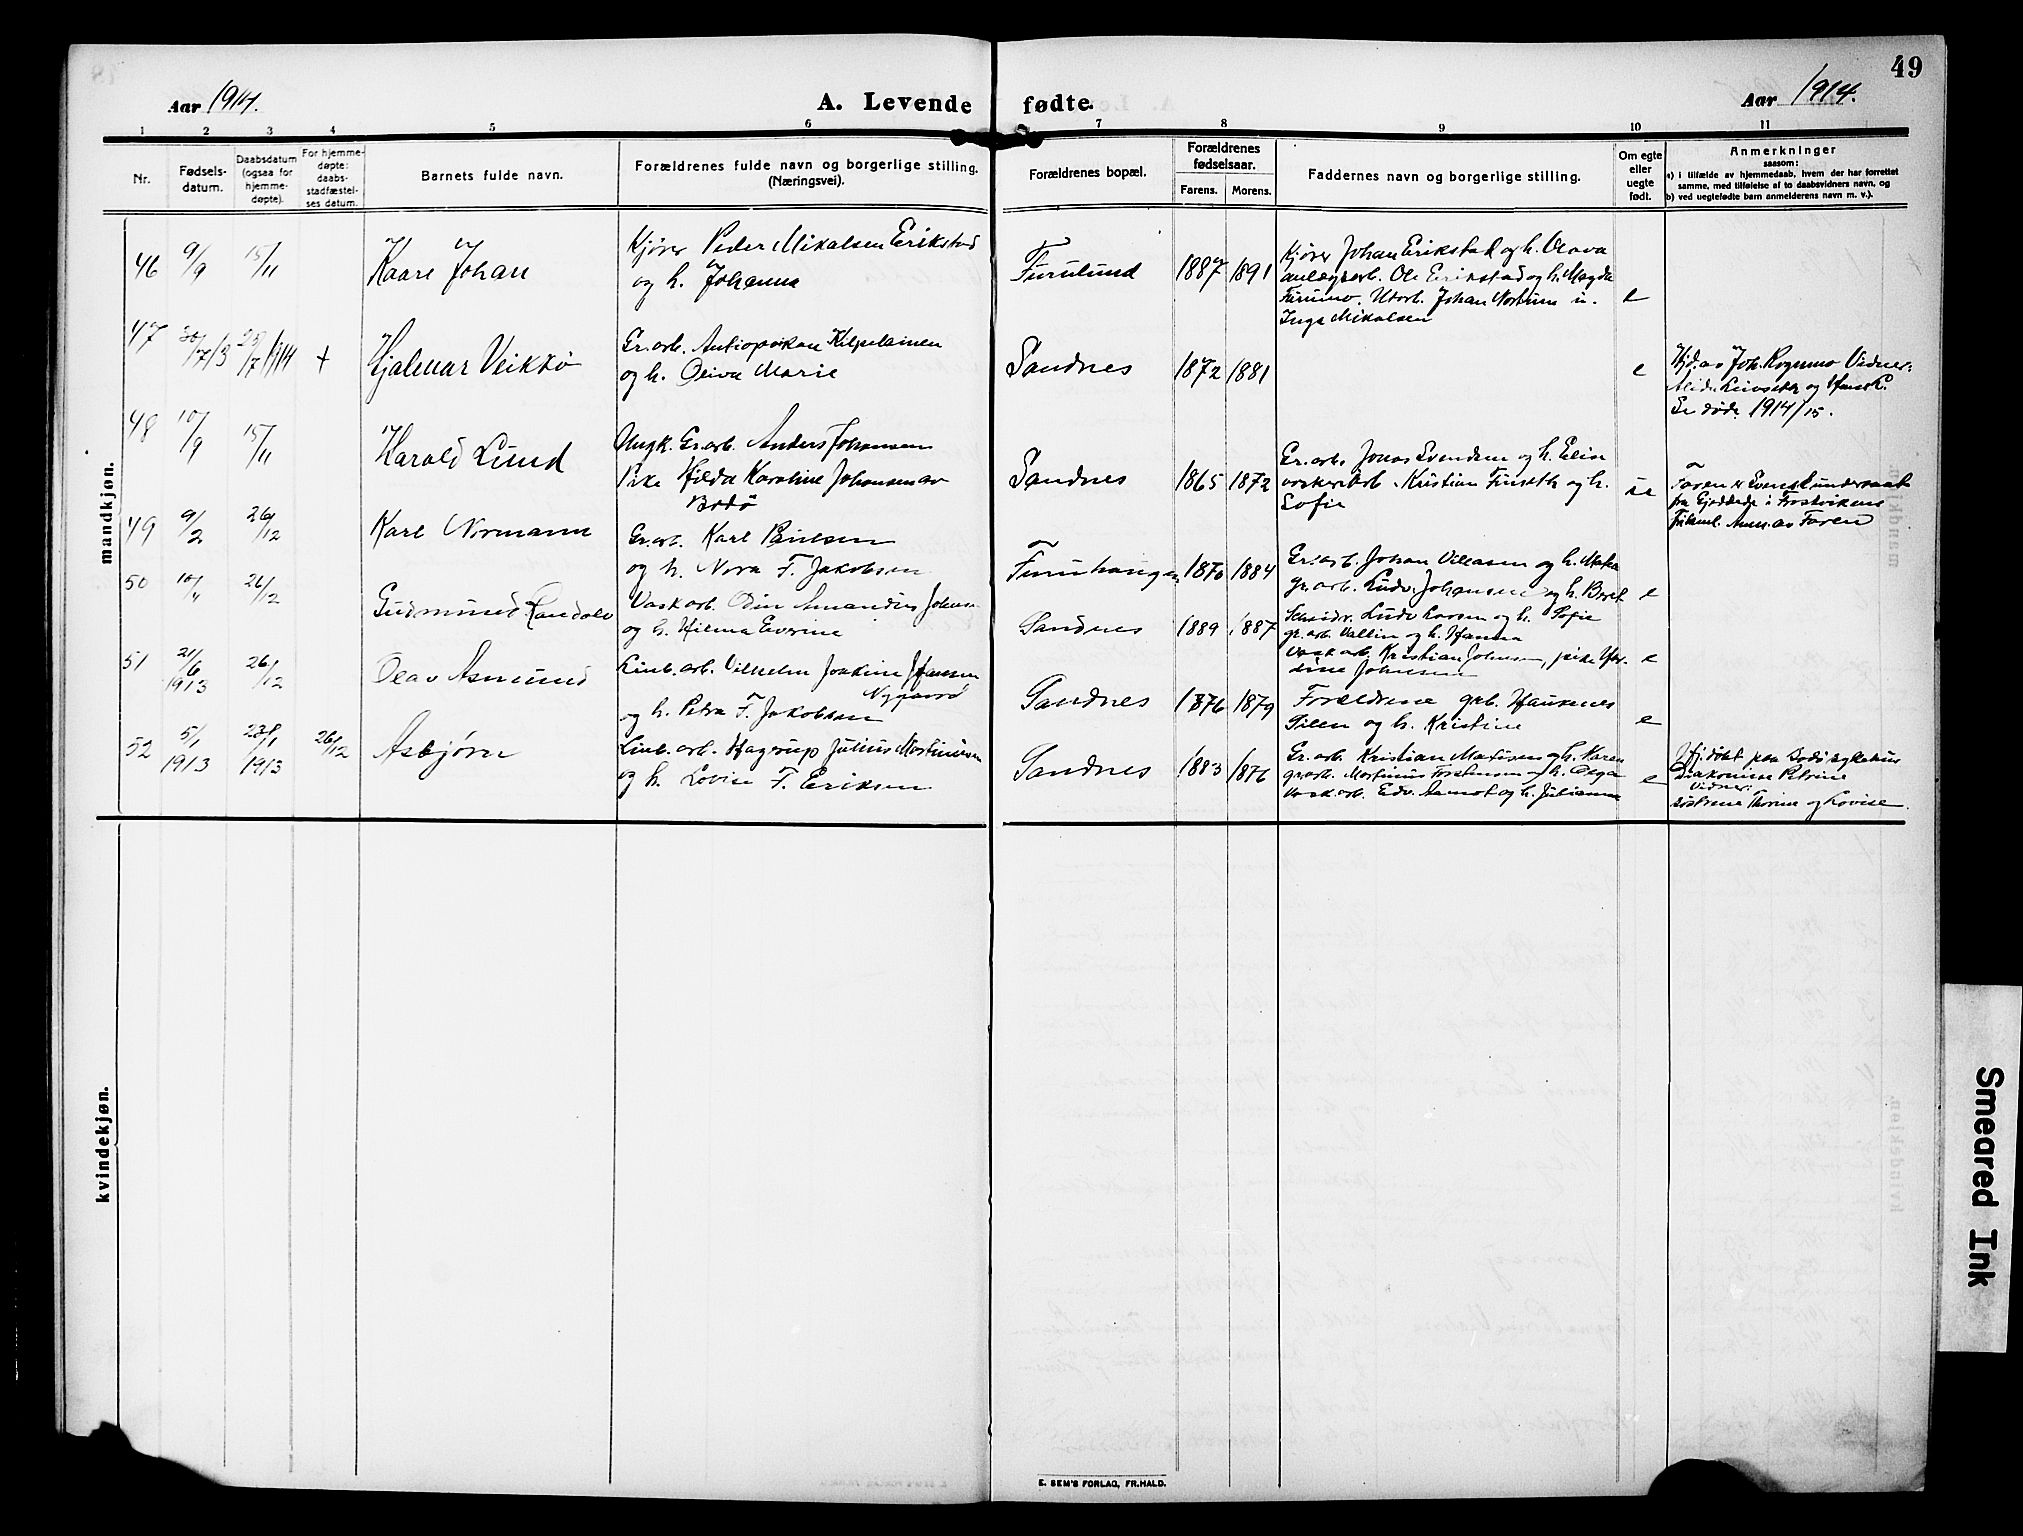 49
Aar 1914.
A. Levende fødte.
Aar 1914.
1 2 3 4 5 6 7 8 9 10 11
Nr.
Fødsels-
datum.
Daabsdatum
(ogsaa for
hjemme-
døpte).
For hjemme-
døpte:
daabs-
stadfæstel-
ses datum.
Barnets fulde navn.
Forældrenes fulde navn og borgerlige stilling.
(Næringsvei).
Forældrenes bopæl.
Forældrenes
fødselsaar.
Farens. Morens.
Faddernes navn og borgerlige stilling.
Om egte
eller
uegte
født.
Anmerkninger
saasom:
a) i tilfælde av hjemmedaab, hvem der har forrettet
samme, med tilføielse af to daabsvidners navn, og
b) ved uegtefødte barn anmelderens navn m. v.).
mandkjøn.
46 9/9 15/11 Kaare Johan
Kjører Peder Mikalsen Erikstad
og h. Johanna
Furulund 1887 1891
Kjører Johan Erikstad og h. Olava
anlægsarb. Ole Erikstad og h. Magda
Furumo. Utarb. Johan Norum u.
Inga Mikalsen
e
47 30/7/3 25/7/1914 + Hjalmar Veikko
Gr.arb. Kilpelainen
og h. Oliva Marie
Sandnes 1872 1881
e
Hjd. av Joh. Rognmo Vidner:
og Hans K.
Er døde 1914/15.
48 10/9 15/11 Harald Lund
Ungk. Gr.arb. Anders Johansen
Pike Hilda Karoline Johansen av
Bodø
Sandnes 1865 1872
Gr.arb. Jonas Svendsen og h. Elise
Kristian Finseth og h.
Sofie
ue
Faren er svensk undersaat
fra Gjeddede i Frostvikens
Anm. av Faren
49 9/2 26/12 Karl Normann
Gr.arb. Karl Paulsen
og h. Nora F. Jakobsen
Furuhaugen 1870 1884
Gr.arb. Johan Villasen og h.
gr.arb. Ludv. Johansen og h. Berit
e
50 10/11 26/12 Gudmund Randolv
Vaskarb. Odin Amandus Johnsen
og h. Hilma Everine
Sandnes 1889 1887
Ludv Larsen og h. Sofie
gr. arb. Vallin og h. Hanna
Vaskarb. Kristian Johnsen, pike
Johnsen
e
51 21/6 1913 26/12 Olav Asmund
Linb.arb. Vilhelm Joakim Hansen
Nygaard
og h. Petra F. Jakobsen
Sandnes 1876 1879
Forældrene grb. Haukenes
og h. Kristine
e
52 5/1 1913 23/1 1913 26/12 Asbjørn
Linb.arb. Hagerup Julius Martinusen
og h. Lovise F. Eriksen
Sandnes 1883 1876
Gr.arb. Kristian Martinsen og h. Karen
gr.arb. Martinus Torstensen og h. Olga
Vaskarb. Edv. Aamot og h. Julianna
e
Hj.døpt paa Bodø sykehus
Diakonisse Petrine
Vidner:
søstrene Thorine og Lovise.
kvindekjøn.
E. SEM'S FORLAG, FR.HALD.
Smeared Ink